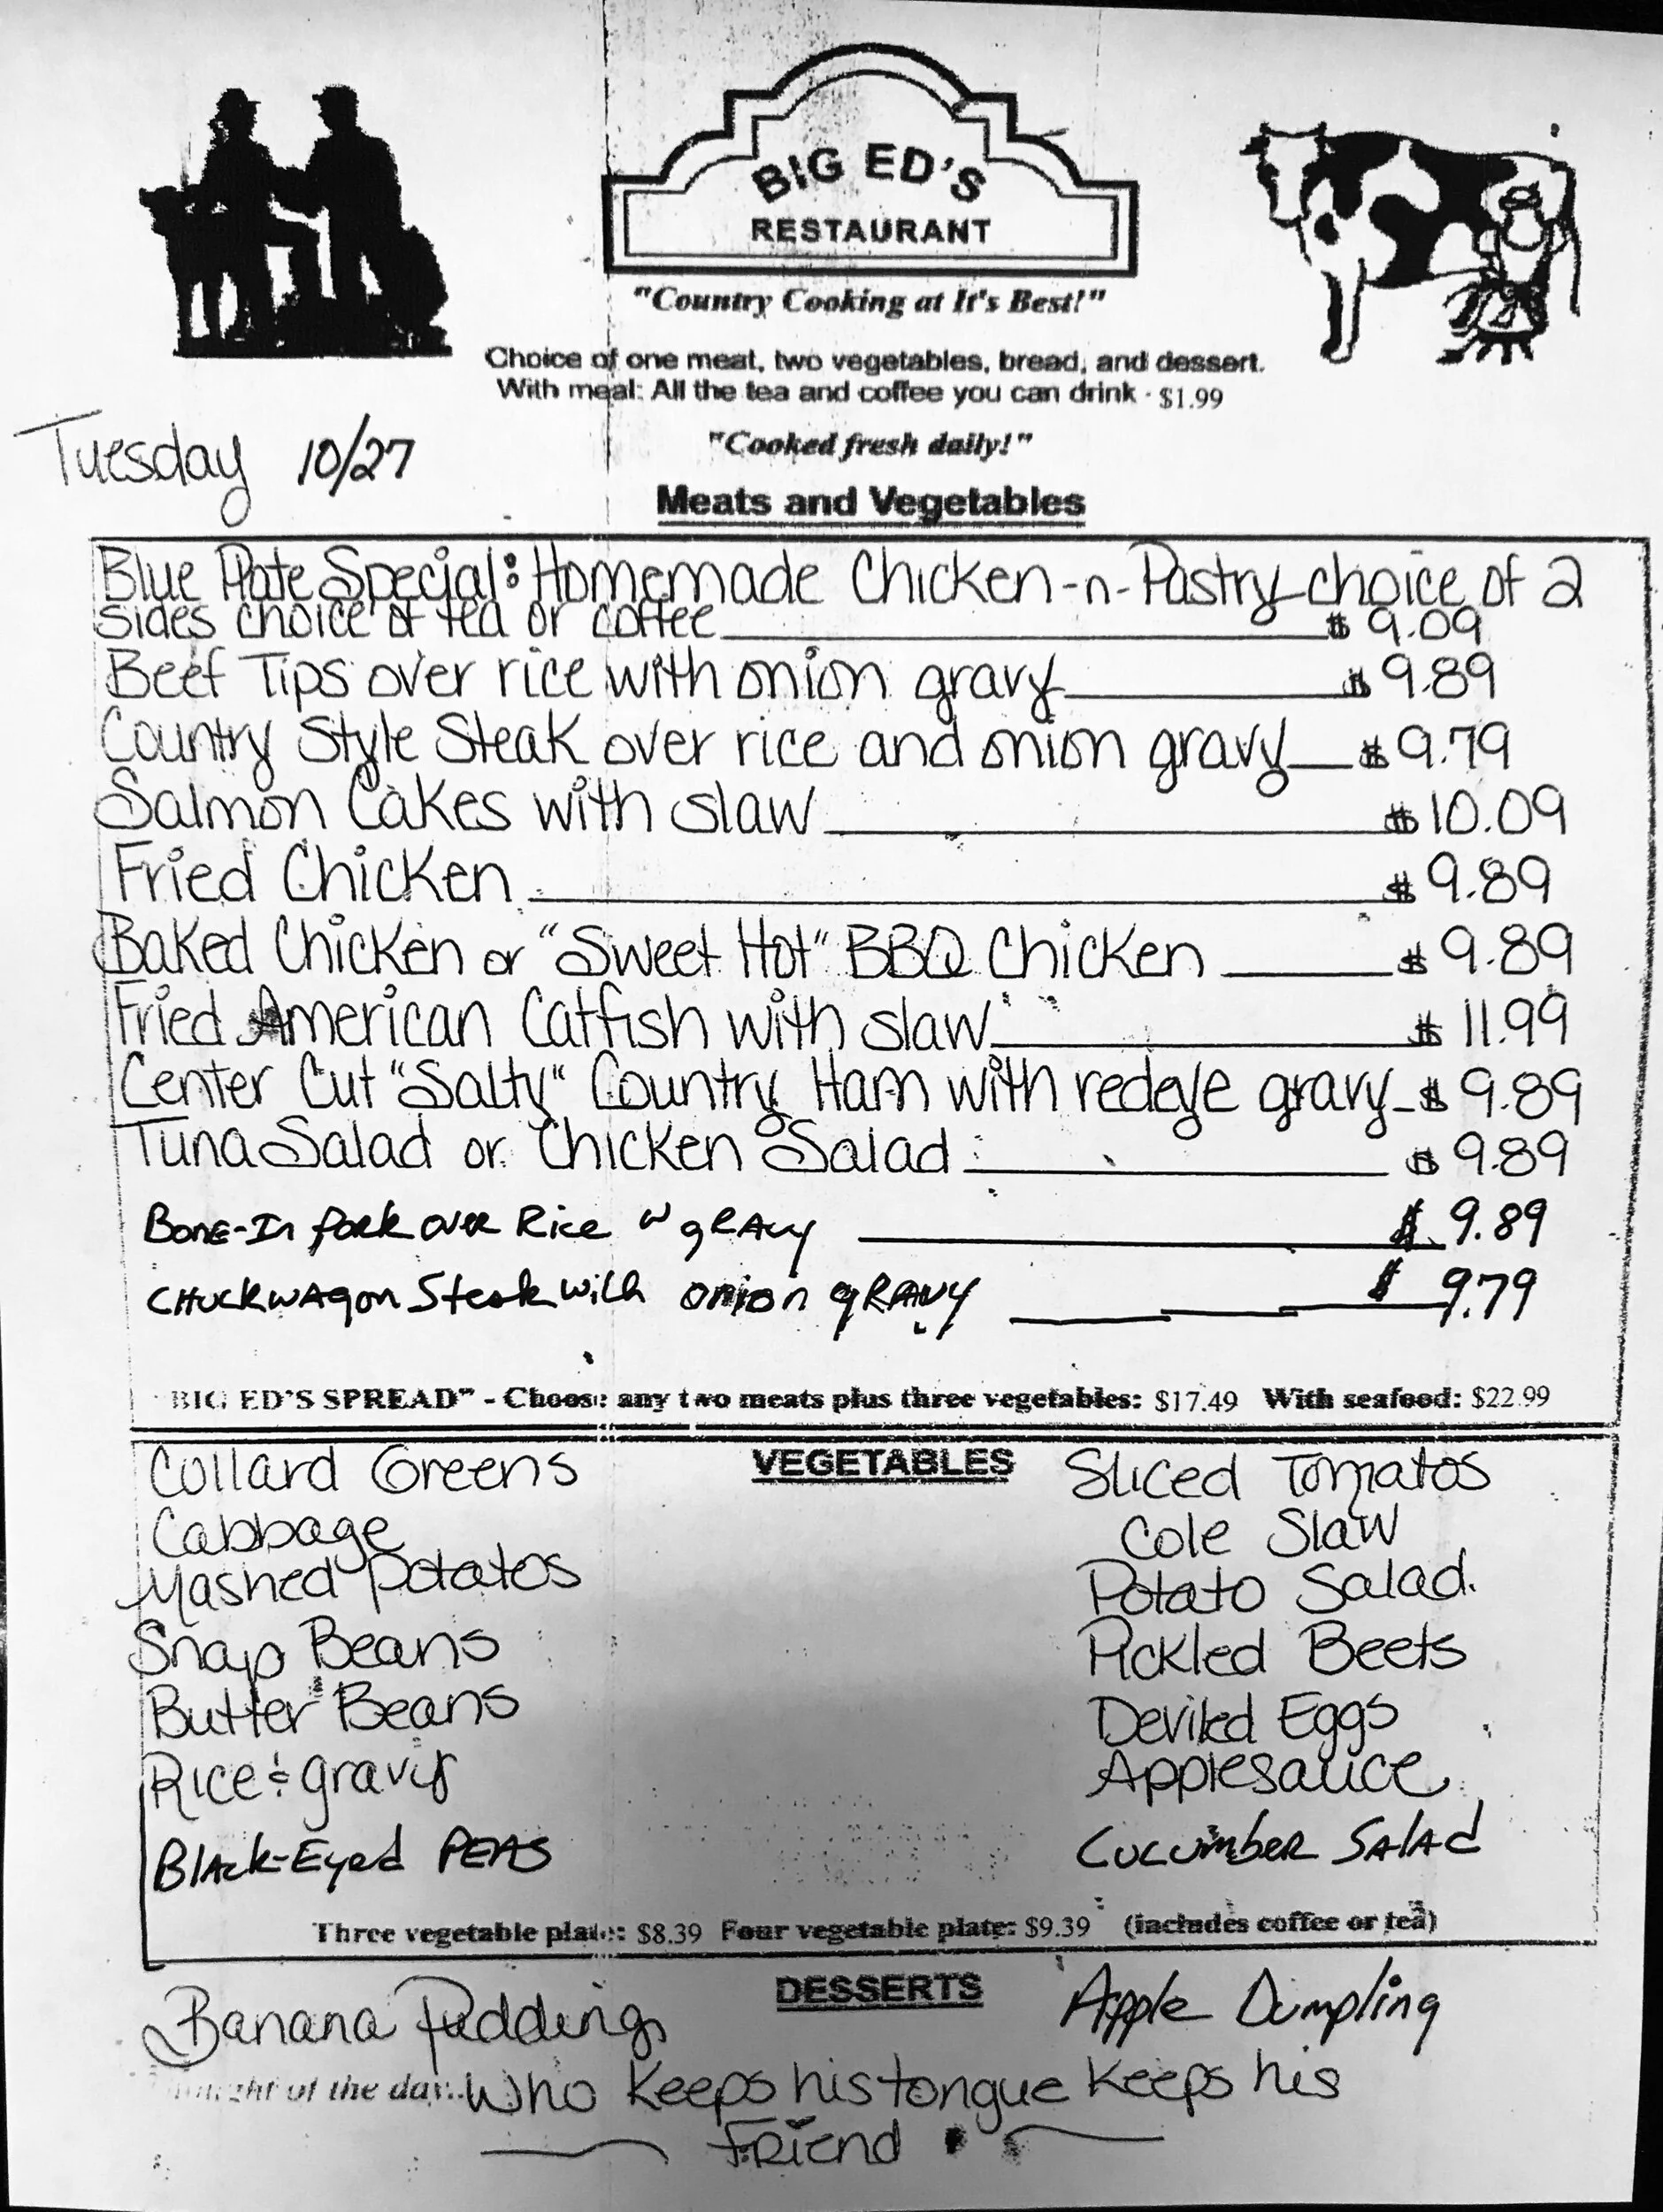 BIG ED'S
RESTAURANT
"Country Cooking at It's Best!"
Choice of one meat, two vegetables, bread, and dessert.
With meal: All the tea and coffee you can drink - $1.99
Tuesday 10/27
"Cooked fresh daily!"
Meats and Vegetables
Blue Plate Special: Homemade Chicken-n-Pastry choice of 2
sides choice of tea or coffee $9.09
Beef Tips over rice with onion gravy $9.89
Country Style Steak over rice and onion gravy $9.79
Salmon Cakes with slaw $10.09
Fried Chicken $9.89
Baked Chicken or "Sweet Hot" BBQ Chicken $9.89
Fried American Catfish with slaw $11.99
Center Cut "Salty" Country Ham with redeye gravy $9.89
Tuna Salad or Chicken Salad $9.89
Bone-In Pork over Rice w gravy $9.89
Chuckwagon Steak with onion gravy $9.79
"BIG ED'S SPREAD" - Choose any two meats plus three vegetables: $17.49 With seafood: $22.99
VEGETABLES
Collard Greens Sliced Tomatos
Cabbage Cole Slaw
Mashed Potatos Potato Salad
Snap Beans Pickled Beets
Butter Beans Deviled Eggs
Rice & gravy Applesauce
Black-Eyed Peas Cucumber Salad
Three vegetable plate: $8.39 Four vegetable plate: $9.39 (includes coffee or tea)
DESSERTS
Banana Pudding Apple Dumpling
of the day... Who Keeps his tongue Keeps his
Friend